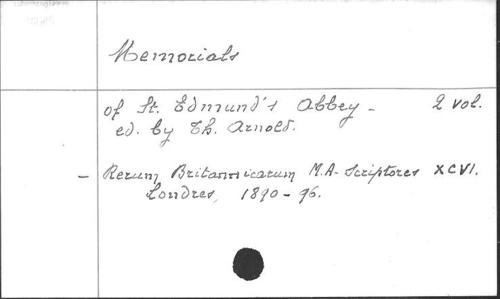 Memorials
of St. Edmund's Abbey - 2 vol.
ed. by Th. Arnold.
- Rerum Britannicarum M.A. Scriptores XCVI.
Londres, 1890-96.